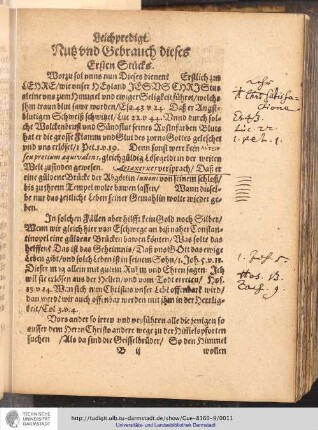 Leichpredigt.
Nutz vnd Gebrauch dieses
Ersten Stücks.
Worzu sol vnns nun Dieses dienen? Erstlich zur
LEHRE/ wie vnser HEyland JESUS CHRJStus
alleine vns zum Himmel vnd ewiger Seligkeit führet/ welchs
ihm traun blut sawr worden/ Esa. 43 v 24. Daß er Angst-
blutigen Schweiß schwitzet/ Luc 22 v 44. Vnnd durch solche
Wolckenbrust vnd Sündflut seines Rosinfarben Bluts
hat er die grosse Flamm vnd Glut des zorns Gottes geleschet
vnd vns erlöset/ 1 Pet. 1. v 19. Denn sonst were kein
seu pretium æquivalens, gleichgültig Lösegeldt in der weiten
Welt zufinden gewesen. Artaxerxes versprach/ Daß er
eine güldene Brücke der Abgöttin von seinem schloß/
biß zu ihrem Tempel wolte bawen lassen/ Wann dieselbe
nur das zeitliche Leben seiner Gemahlin wolte wieder geben.
In solchen Fällen aber hilfft kein Gold noch Silber/
Wenn wir gleich hier von Eschwege an biß naher Constan-
tinopel eine güldene Brücken bawen könten/ Was solte das
helffen? Das ist das Geheimnis/ Daß vns GOtt das ewige
Leben gibt/ vnd solch Leben ist in seinem Sohn/ 1. Joh. 5. v. 11.
Dieser ists allein mit gutem Ruhm vnd Ehren sagen: Ich
wil sie erlösen aus der Hellen/ vnd vom Todt erretten/ Hos.
13. v 14. Wan sich nun Christus vnser Lebē offenbaren wird/
dan werdet wir auch offenbar werden mit ihm in der Herrlig-
keit/ Col 3. v. 4.
Vors ander so irren vnd verführen alle die jenigen so
ausser dem Herrn Christo andere wege zu der Himelspforten
suchen/ Als da sind die Geisselbrüder/ So den Himmel
B ij wollen
Luc. 22.
1. pet. 1.
1. Joh. 5.
Hos. 13.
TECHNISCHE
UNIVERSITÄT
DARMSTADT
http://tudigit.ulb.tu-darmstadt.de/show/Gue-8160-9/0011
Universitäts- und Landesbibliothek Darmstadt